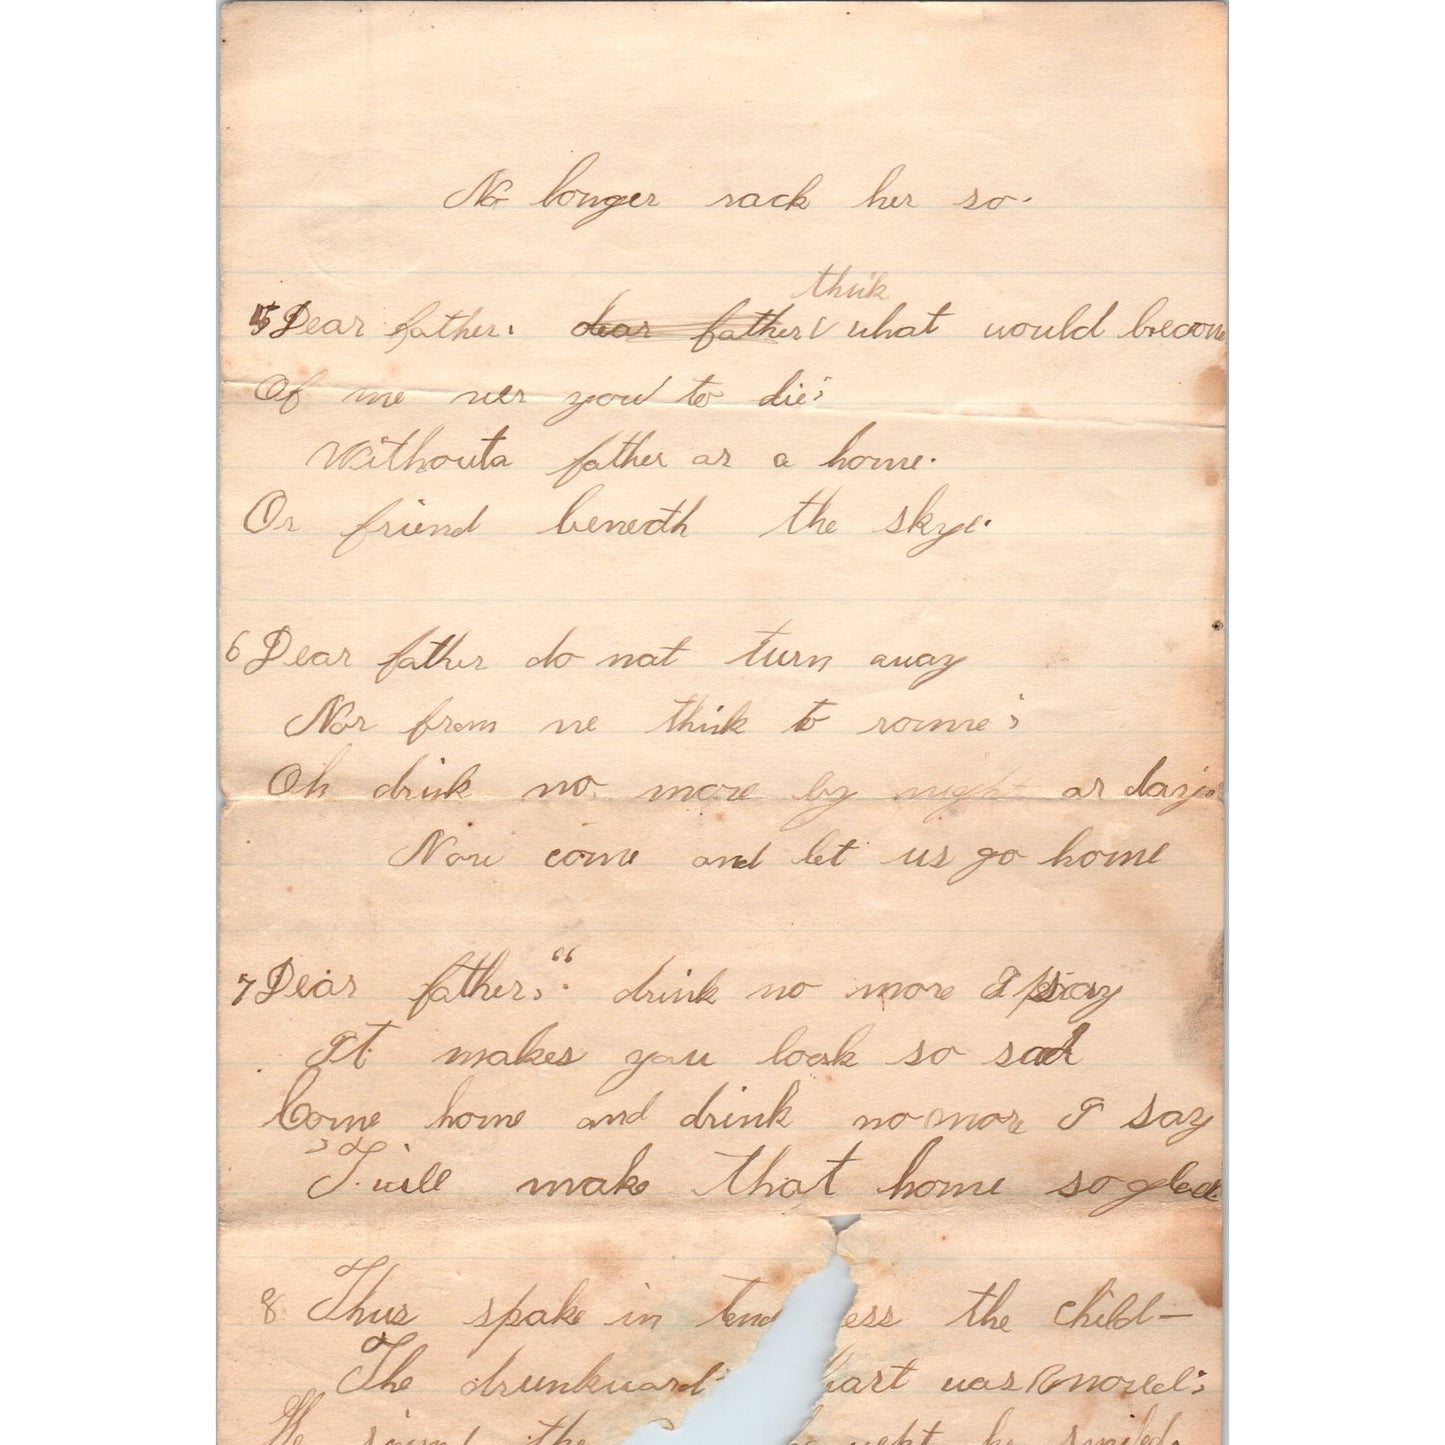 No longer rack her so.
think
5 Dear father: dear father what would become
Of me ner you to die;
Withouta father or a home.
Or friend beneath the skye.
6 Dear father do not turn away
Nor from me think to rome;
Oh drink no more by night or day;
Now come and let us go home
7 Dear father," drink no more I say
It makes you look so sad
Come home and drink no more I say
'Twill make that home so glad
8 Thus spake in tend ess the child—
The drunkward art was moved;
He the wept he smiled